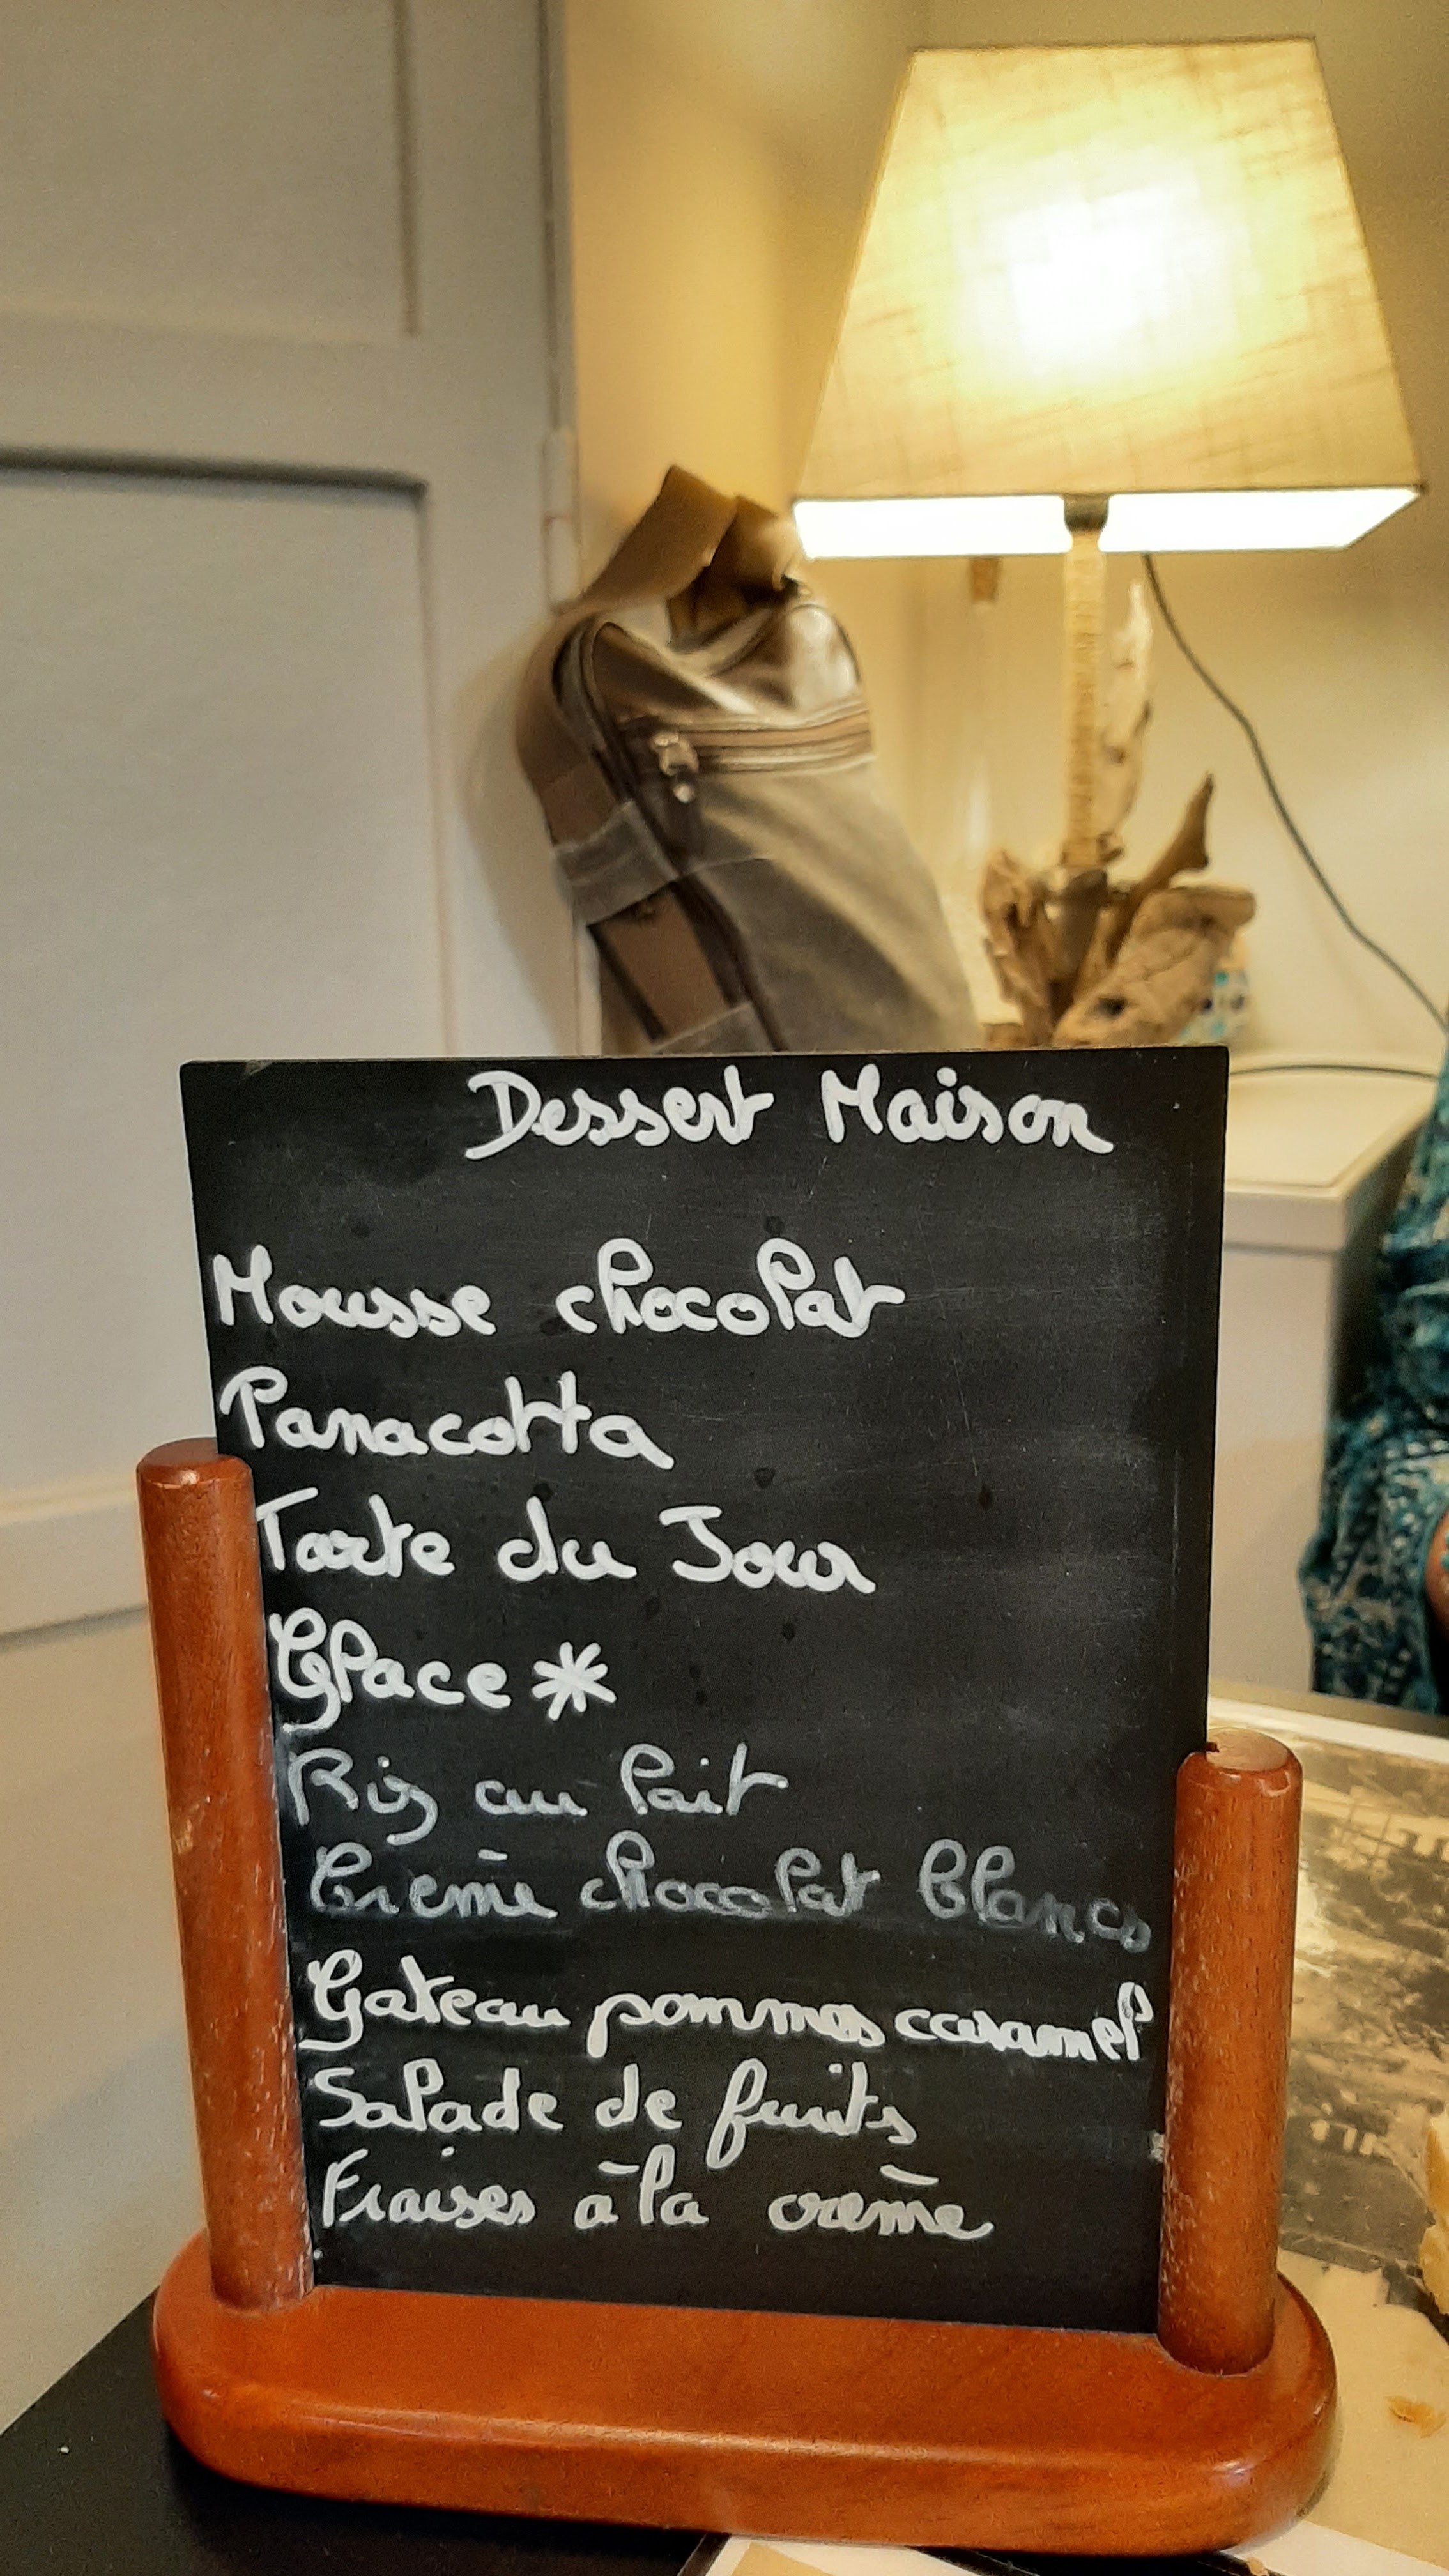 Dessert Maison
Mousse chocolat
Panacotta
Tarte du Jour
Glace *
Riz au lait
Crème chocolat blancs
Gateau pommes caramel
Salade de fruits
Fraises à la crème